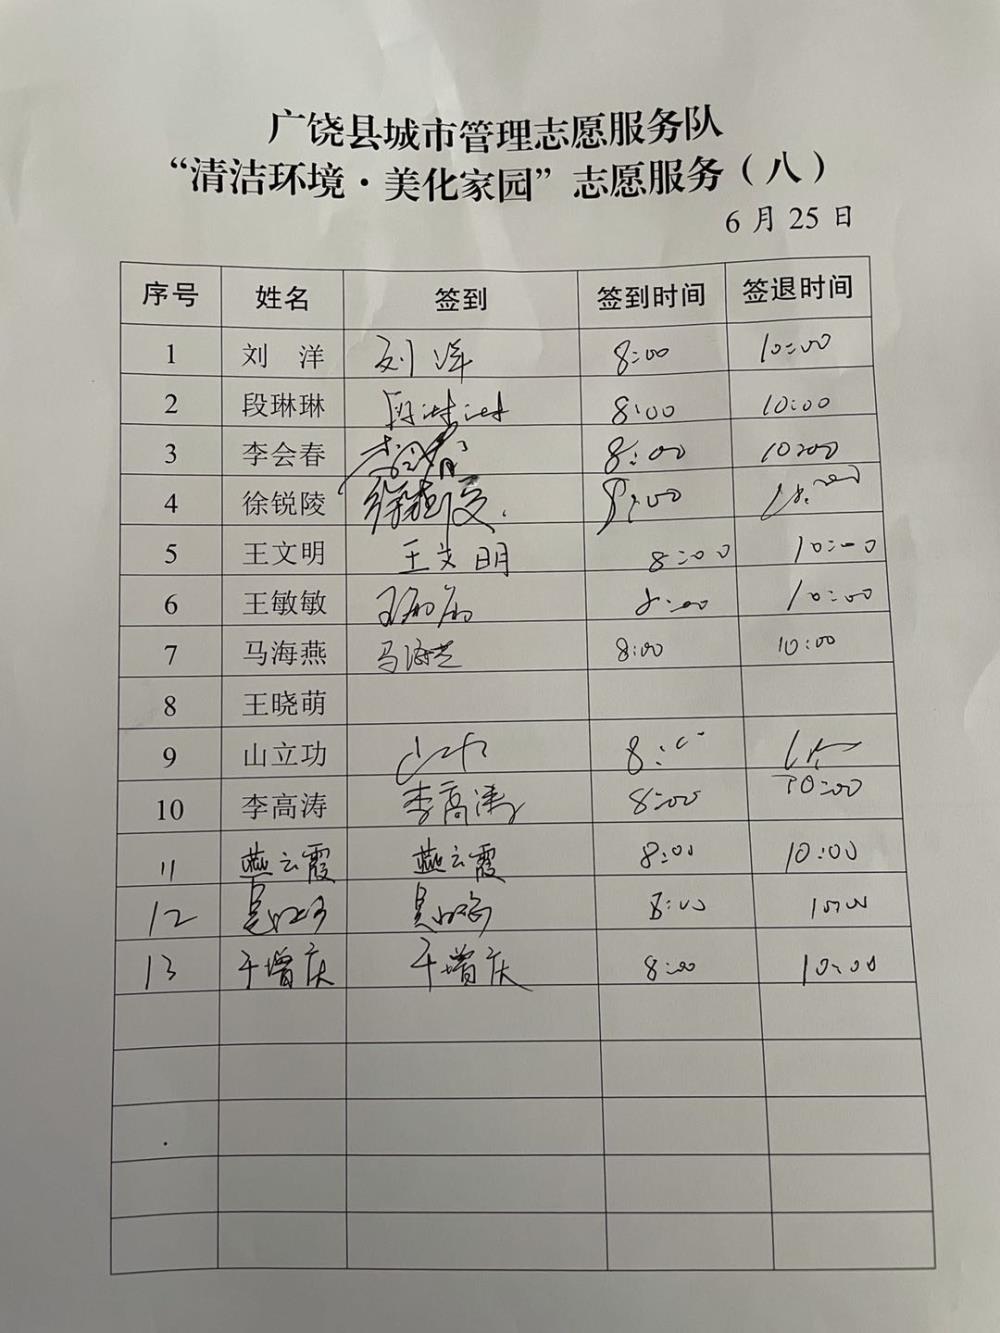 广饶县城市管理志愿服务队
“清洁环境·美化家园”志愿服务（八）
6月25日
序号 姓名 签到 签到时间 签退时间
1 刘 洋 刘洋 8:00 10:00
2 段琳琳 段琳琳 8:00 10:00
3 李会春 李会春 8:00 10:00
4 徐锐陵 8:00
5 王文明 王文明 8:00 10:00
6 王敏敏 王敏敏 8:00 10:00
7 马海燕 马海燕 8:00 10:00
8 王晓萌
9 山立功 8:
10 李高涛 李高涛 8:00 10:00
11 燕云霞 燕云霞 8:00 10:00
12 8:00 10:00
13 于增庆 于增庆 8:00 10:00